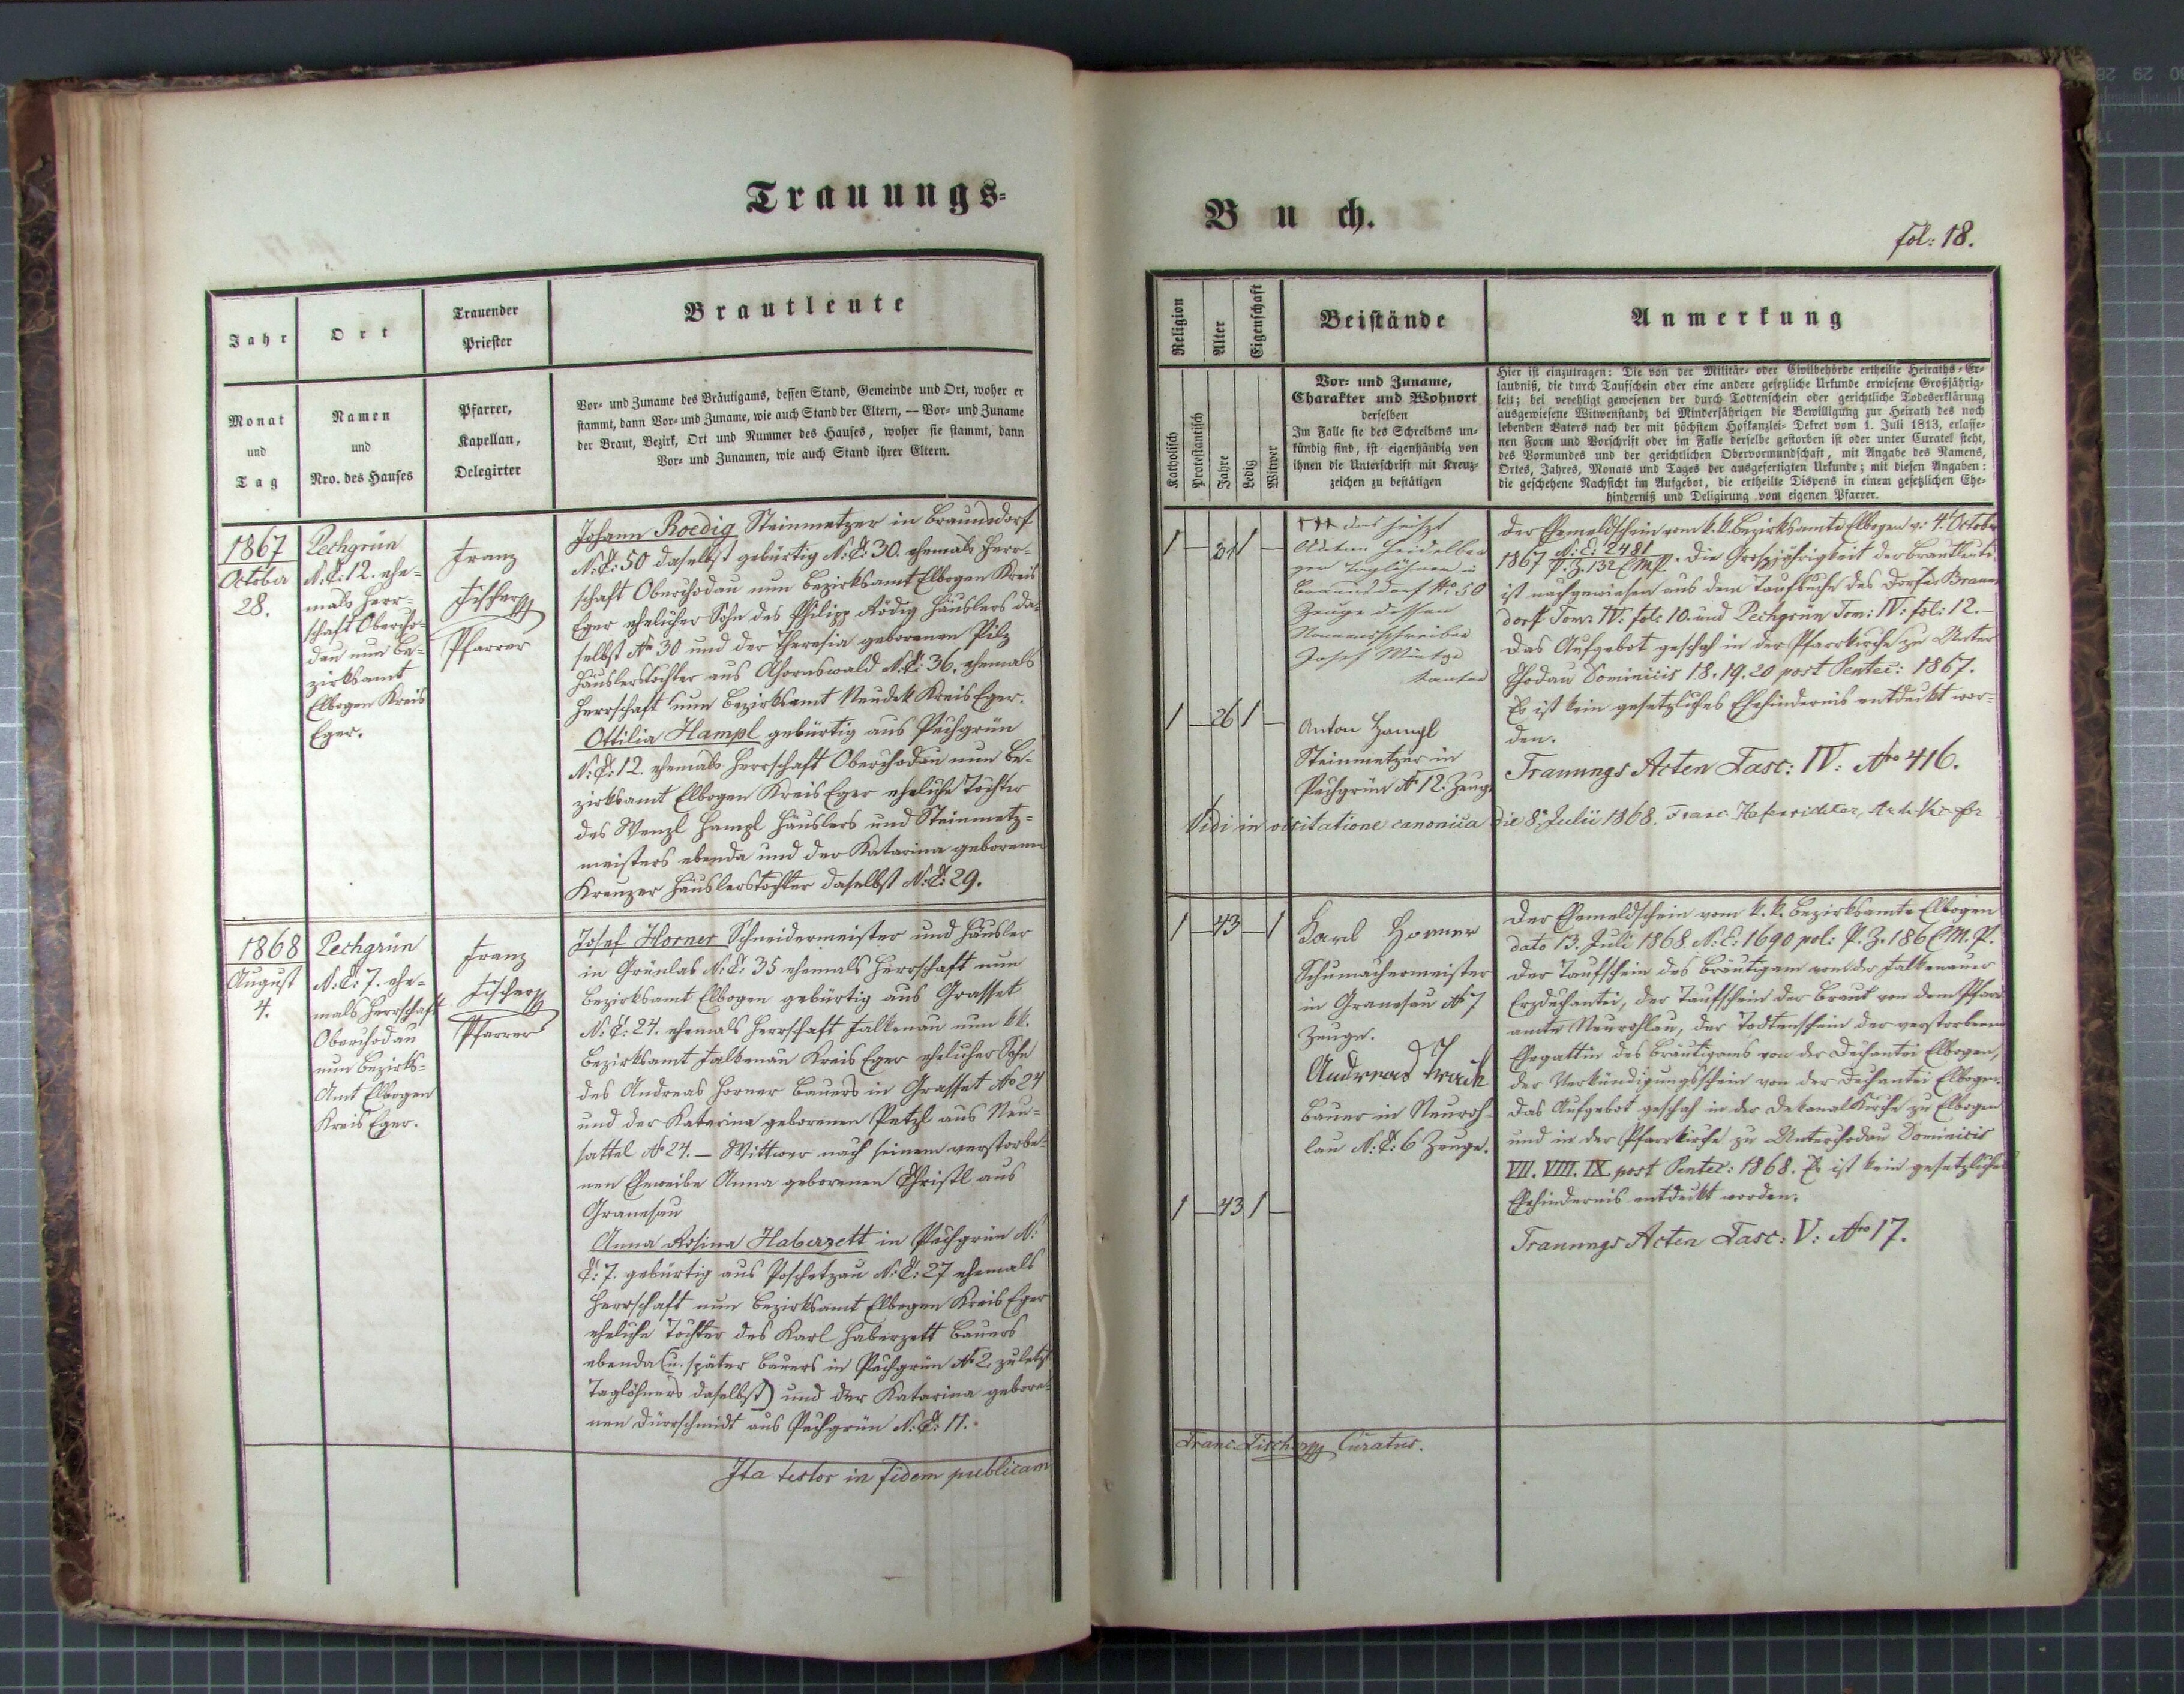 Trauungs-
Buch.
fol: 18.
Jahr
Ort
Trauender
Priester
Brautleute
Monat
und
Tag
Namen
und
Nro. des Hauses
Pfarrer,
Kapellan,
Delegirter
Vor- und Zuname des Bräutigams, dessen Stand, Gemeinde und Ort, woher er
stammt, dann Vor- und Zuname, wie auch Stand der Eltern, — Vor- und Zuname
der Braut, Bezirk, Ort und Nummer des Hauses, woher sie stammt, dann
Vor- und Zunamen, wie auch Stand ihrer Eltern.
Religion
Alter
Eigenschaft
Beistände
Anmerkung
Katholisch
Protestantisch
Jahre
Ledig
Witwer
Vor- und Zuname,
Charakter und Wohnort
derselben
Im Falle sie des Schreibens un-
kündig sind, ist eigenhändig von
ihnen die Unterschrift mit Kreuz-
zeichen zu bestätigen
Hier ist einzutragen: Die von der Militär- oder Civilbehörde ertheilte Heiraths-Er-
laubniß, die durch Taufschein oder eine andere gesetzliche Urkunde erwiesene Großjährig-
keit; bei verehligt gewesenen der durch Todtenschein oder gerichtliche Todeserklärung
ausgewiesene Witwenstand; bei Minderjährigen die Bewilligung zur Heirath des noch
lebenden Vaters nach der mit höchstem Hofkanzlei- Dekret vom 1. Juli 1813, erlasse-
nen Form und Vorschrift oder im Falle derselbe gestorben ist oder unter Curatel steht,
des Vormundes und der gerichtlichen Obervormundschaft, mit Angabe des Namens,
Ortes, Jahres, Monats und Tages der ausgefertigten Urkunde; mit diesen Angaben:
die geschehene Nachsicht im Aufgebot, die ertheilte Dispens in einem gesetzlichen Ehe-
hinderniß und Deligirung vom eigenen Pfarrer.
1867
October
28.
Pechgrün
N:C: 12. ehe-
mals Herr-
schaft Obercho-
dau nun Be-
zirksamt
Elbogen Kreis
Eger.
Franz
Fischer
Pfarrer
Johann Roedig Steinmetzer in Braunsdorf
N:C: 50 daselbst gebürtig N:C: 30. ehemals Herr-
schaft Oberchodau nun Bezirksamt Elbogen Kreis
Eger ehelicher Sohn des Philipp Rödig Häuslers da-
selbst No 30 und der Theresia geborenen Pilz
Häuslerstochter aus Ahornswald N:C: 36. ehemals
Herrschaft nun Bezirksamt Neudek Kreis Eger.
Ottilia Hampl gebürtig aus Pechgrün
N:C: 12. ehemals Herrschaft Oberchodau nun Be-
zirksamt Elbogen Kreis Eger eheliche Tochter
des Wenzl Hampl Häuslers und Steinmetz-
meisters ebenda und der Katarina geborenen
Kreuzer Häuslerstochter daselbst N:C: 29.
1 31 1
+++ das heißt
Anton Heidelber
ger Taglöhner in
Braunsdorf No 50
Zeuge dessen
Namensschreiber
Josef
1 26 1
Anton Hampl
Steinmetzer in
Pechgrün No 12. Zeuge
Der Ehemeldschein vom k.k. Bezirksamte Elbogen v: 4. October
1867 N: E: 2481 P.Z. 132 . Die Großjährigkeit der Brautleute
ist nachgewiesen aus dem Taufbuche des Dorfes Brauns
dorf Tom: IV: fol: 10. und Pechgrün Tom: IV: fol: 12.—
Das Aufgebot geschah in der Pfarrkirche zu Unter
Chodau Dominicis 18. 19. 20 post Pentec: 1867.
Es ist kein gesetzliches Ehehindernis entdeckt wor-
den.
Trauungs Acten Fasc: IV: Nro 416.
Vidi in visitatione canonica die 8. Julii 1868. Franc
1868
August
4.
Pechgrün
N:C: 7. ehe-
mals Herrschaft
Oberchodau
nun Bezirks-
Amt Elbogen
Kreis Eger.
Franz
Fischer
Pfarrer
Josef Horner Schneidermeister und Häusler
in Grünlas N:C: 35 ehemals Herrschaft nun
Bezirksamt Elbogen gebürtig aus Grasset
N:C: 24. ehemals Herrschaft Falkenau nun kk.
Bezirksamt Falkenau Kreis Eger ehelicher Sohn
des Andreas Horner Bauers in Grasset No 24
und der Katarina geborenen Petzl aus Neu-
sattel No 24. — Wittwer nach seinem verstorbe-
nen Eheweibe Anna geborenen Christl aus
Granesau
Anna Rosina Haberzett in Pechgrün N:
C: 7. gebürtig aus Poschetzau N:C: 27 ehemals
Herrschaft nun Bezirksamt Elbogen Kreis Eger
eheliche Tochter des Karl Haberzett Bauers
ebenda (u. später Bauers in Pechgrün No 2. zuletzt
Taglöhners daselbst) und der Katarina gebore-
nen Dürrschmidt aus Pechgrün N:C: 11.
1 43 1
Karl Horner
Schumachermeister
in Granesau No 7
Zeuge.
Andreas
Bauer in Neuroh-
lau N:C: 6 Zeuge.
1 43 1
Der Ehemeldschein vom k.k. Bezirksamte Elbogen
dato 13. Juli 1868. N: E: 1690 pol: P.Z. 186
Der Taufschein des Bräutigam von der Falkenauer
Erzdechantei, der Taufschein der Braut von dem Pfarr
amte Neurohlau, der Todtenschein der verstorbenen
Ehegattin des Bräutigams von der Dechantei Elbogen,
der Verkündigungsschein von der Dechantei Elbogen.
Das Aufgebot geschah in der Dekanalkirche zu Elbogen
und in der Pfarrkirche zu Unterchodau Dominicis
VII. VIII. IX post Pentec: 1868. Es ist kein gesetzliches
Ehehindernis entdeckt worden.
Trauungs Acten Fasc: V: Nro 17.
Ita testor in fidem publicam
Franc. Fischer Curatus.